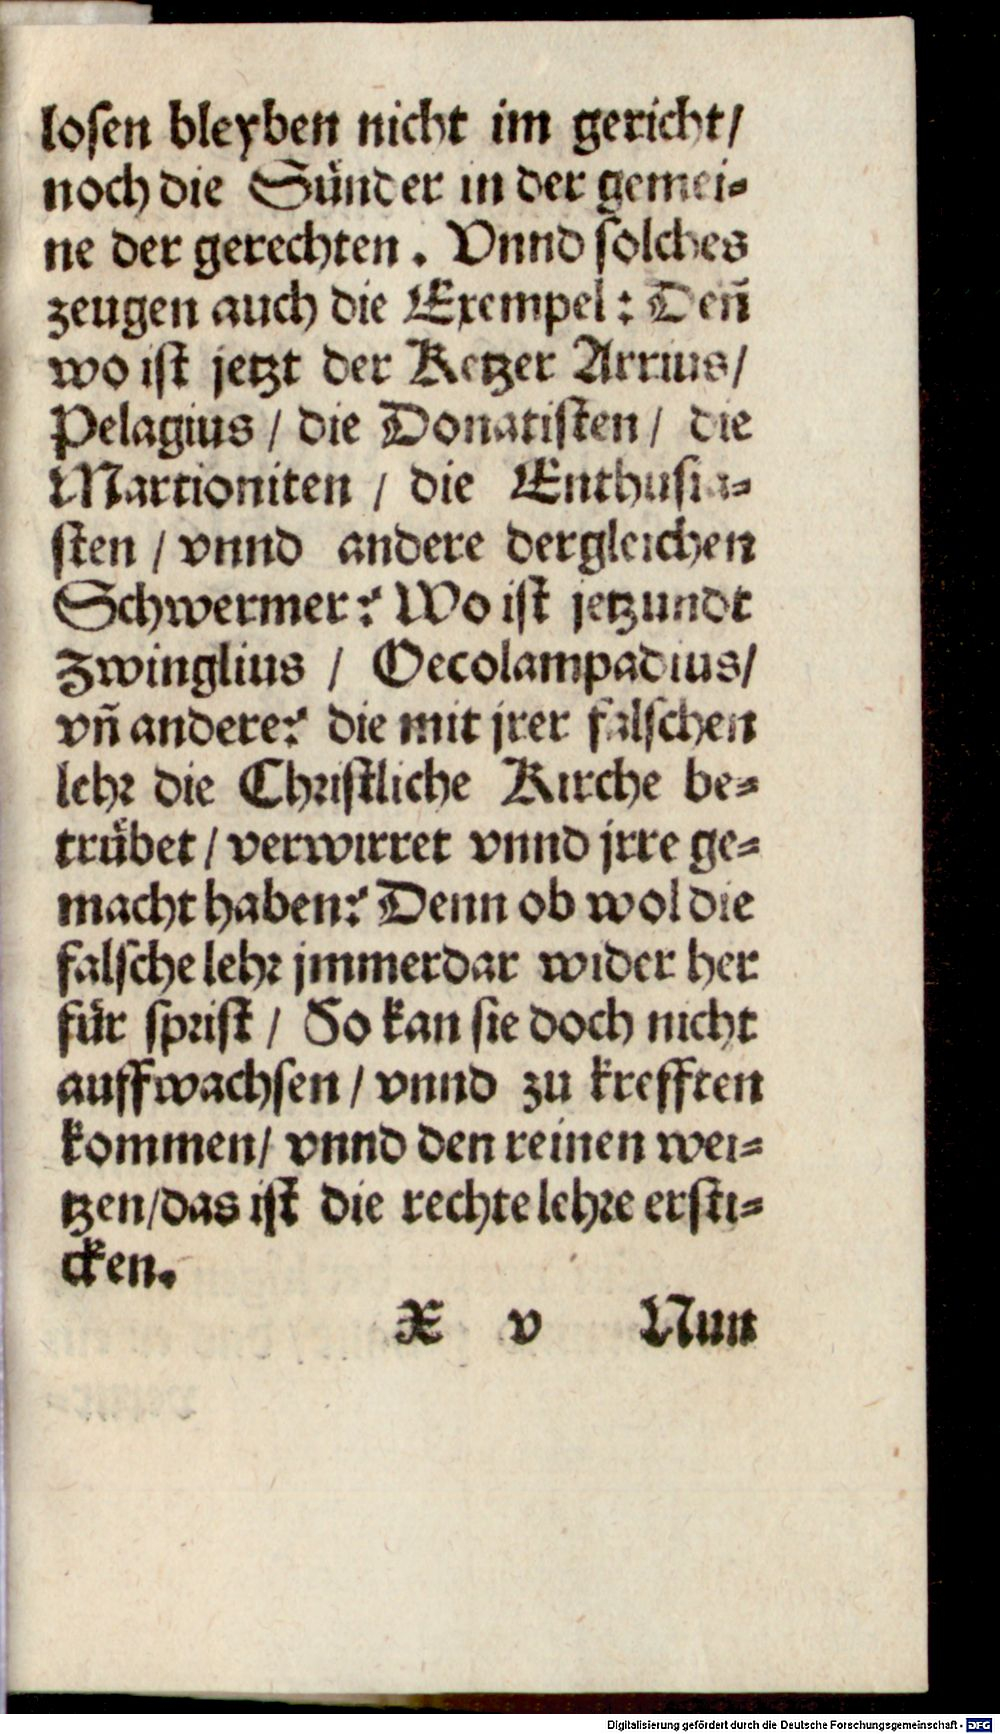 losen bleyben nicht im gericht/
noch die Sünder in der gemei-
ne der gerechten. Vnnd solches
zeugen auch die Exempel: Den̄
wo ist jetzt der Ketzer Arrius/
Pelagius / die Donatisten / die
Martioniten / die Enthusia-
sten / vnnd andere dergleichen
Schwermer? Wo ist jetzundt
Zwinglius / Oecolampadius/
vn̄ andere? die mit jrer falschen
lehr die Christliche Kirche be-
trübet / verwirret vnnd jrre ge-
macht haben? Denn ob wol die
falsche lehr jmmerdar wider her
für sprist / So kan sie doch nicht
auffwachsen / vnnd zu krefften
kommen/ vnnd den reinen wei-
tzen/das ist die rechte lehre ersti-
cken.
X v Nun
Digitalisierung gefördert durch die Deutsche Forschungsgemeinschaft - DFG